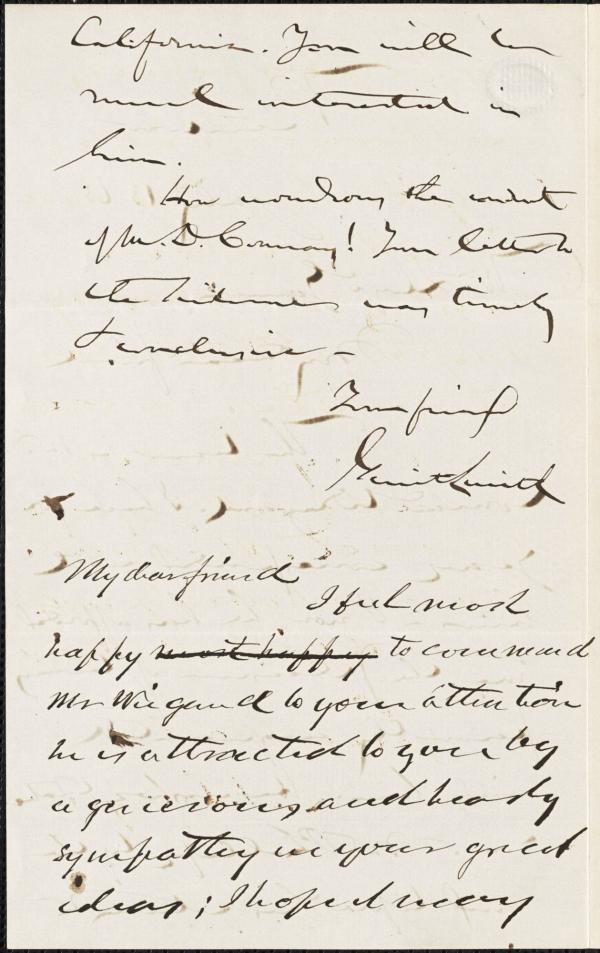 California. You will be
much interested in
him.
How wondrous the conduct
of Mr. D. Conway! Your letter to
the was timely
& conclusive —
Your friend
Gerrit Smith
My dear friend
I feel most
happy most happy to commend
Mr Wiegand to your attention
he is attracted to you by
a generous and hearty
sympathy in your great
ideas; I hope I may